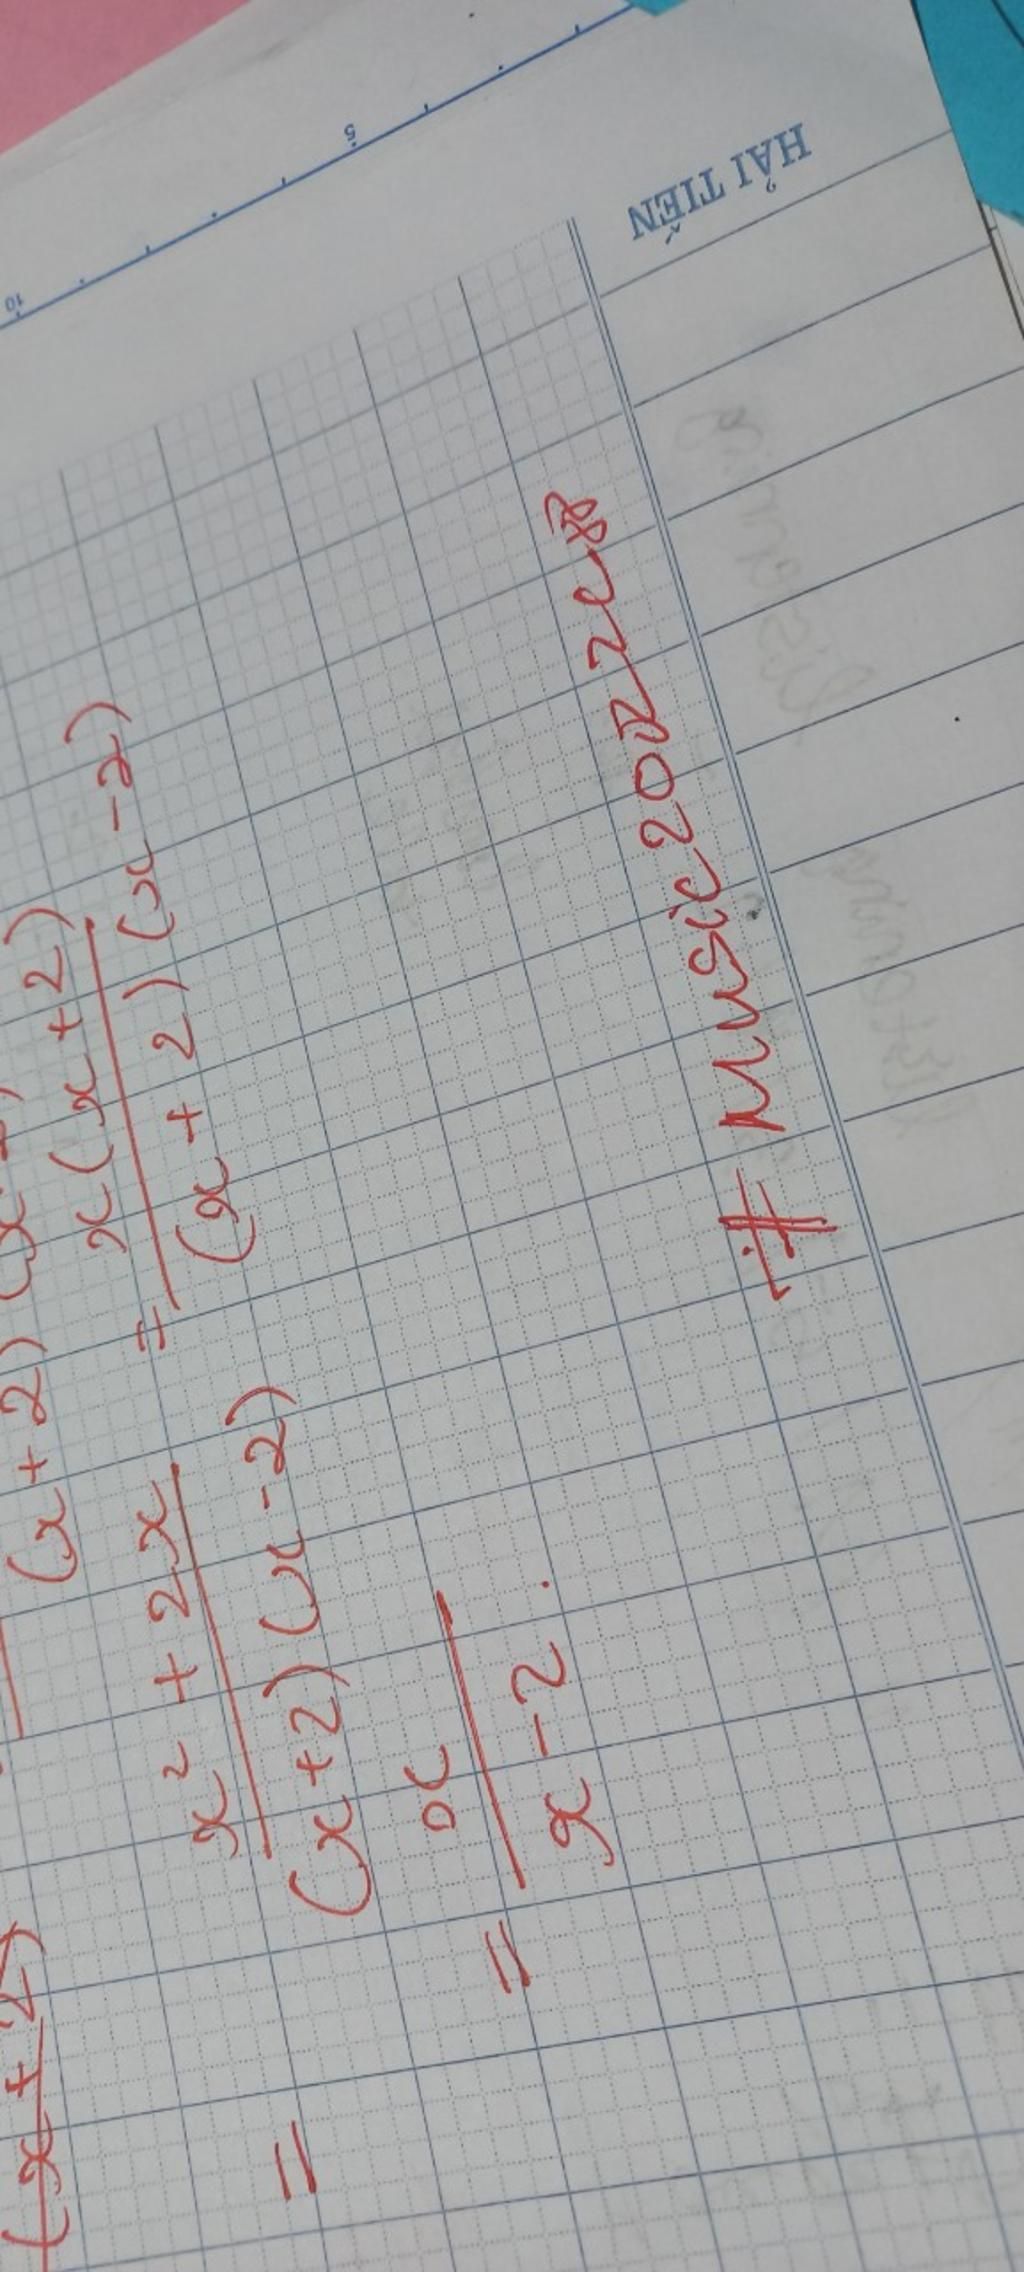 (x + 2)
(x + 2)
x² + 2x / (x + 2)(x - 2) = x(x + 2) / (x + 2)(x - 2)
=
= x / x - 2 .
# Music2022
HẢI TIẾN
5
10